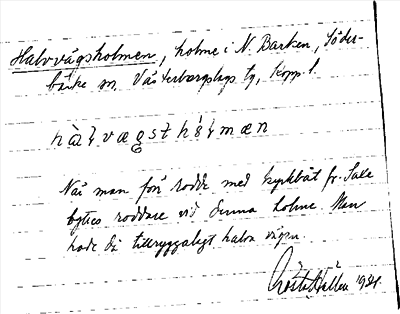 Halvvägsholmen, holme i N. Barken, Söder-
bärke sn, Västerbergslags tg, Kopp. l.
När man förr rodde med kyrkbåt fr.
byttes roddare vid denna holme. Man
hade då tillryggalagt halva vägen.
Gösta 1921.